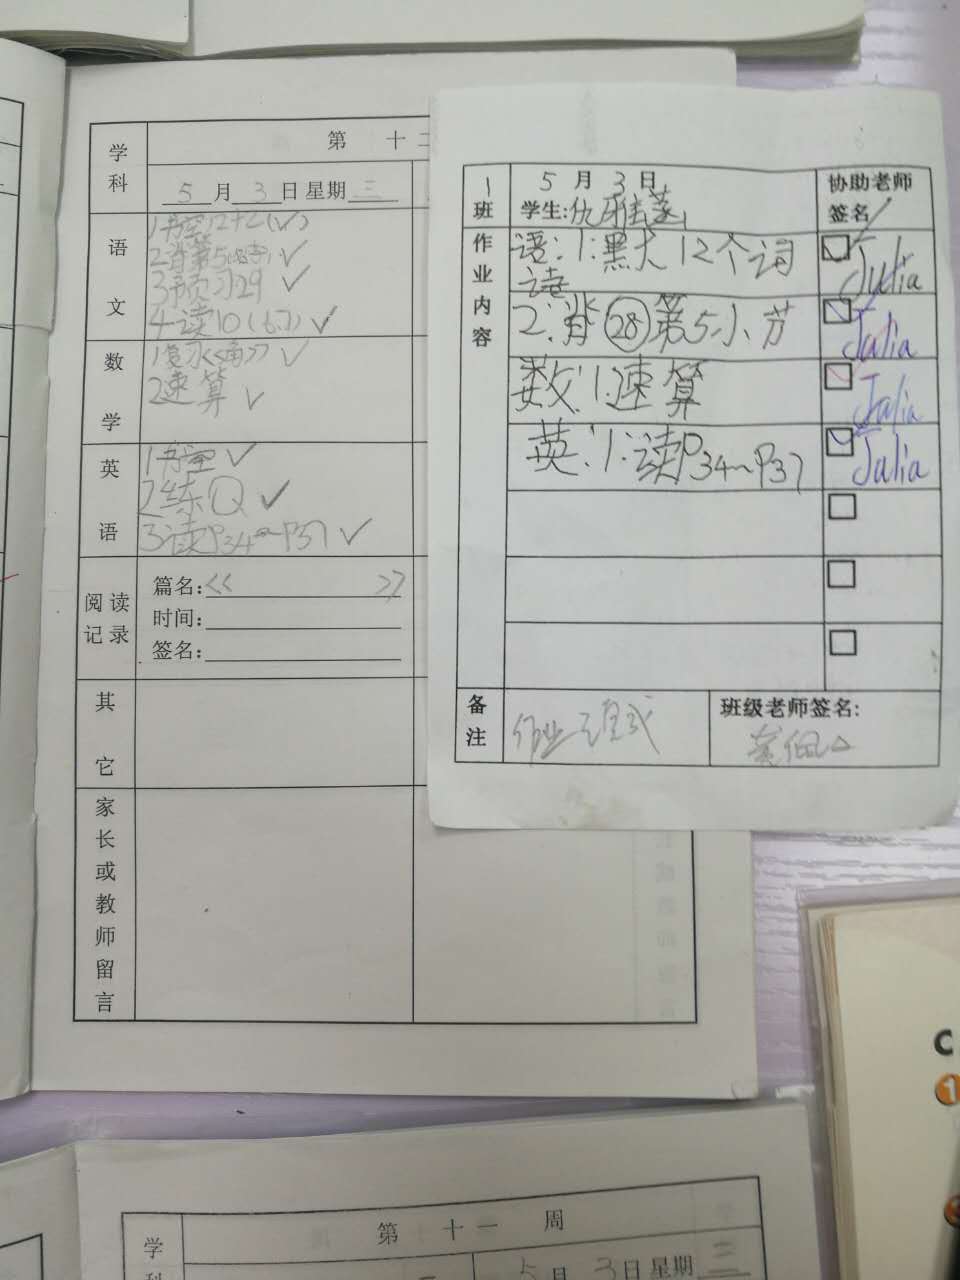 学科
第 十二
5月3日 星期三
语文
2背第5小节 ✓
3预习29 ✓
4读10(6)
数学
1复习《角》 ✓
2速算 ✓
英语
1书空 ✓
2练Q ✓
3读P34~P37 ✓
阅读记录
篇名:《 》
时间:
签名:
其它
家长或教师留言
1班
5月3日
学生:仇雅
协助老师签名
作业内容
语:1.默 12个词
读
Julia
2.背㉘第5小节
Julia
数:1.速算
Julia
英:1.读P34~P37
Julia
备注
作业
班级老师签名:
学科
第 十一 周
5月3日 星期三
C
1